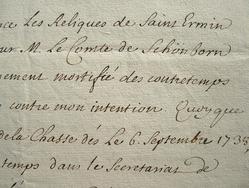 nce Les Reliques de Saint Ermin
ur M. Le Comte de Schönborn
nement mortifié des contretemps
contre mon intention. Quoyque
de la Chasse dés Le 6. Septembre 1735
temps dans le Secretariat de